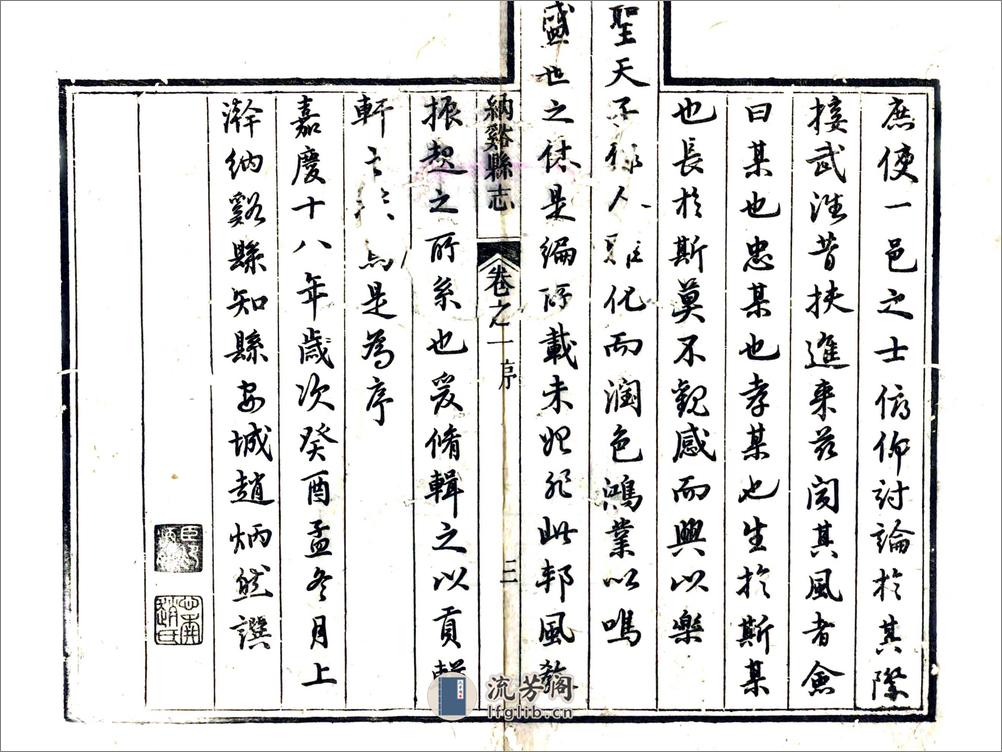 庶使一邑之士俯仰討論於其際
接武往昔挾進来兹聞其風者僉
曰某也忠某也孝某也生於斯某
也長於斯莫不觀感而興以樂
聖天子人化而潤色鴻業以鳴
盛世之休是編所載未始非此邦風教
納谿縣志 卷之一 序 三
振起之所系也爰脩輯之以貢輶
軒是為序
嘉慶十八年歲次癸酉孟冬月上
澣納谿縣知縣安城趙炳然譔
流芳阁
lfglib.cn